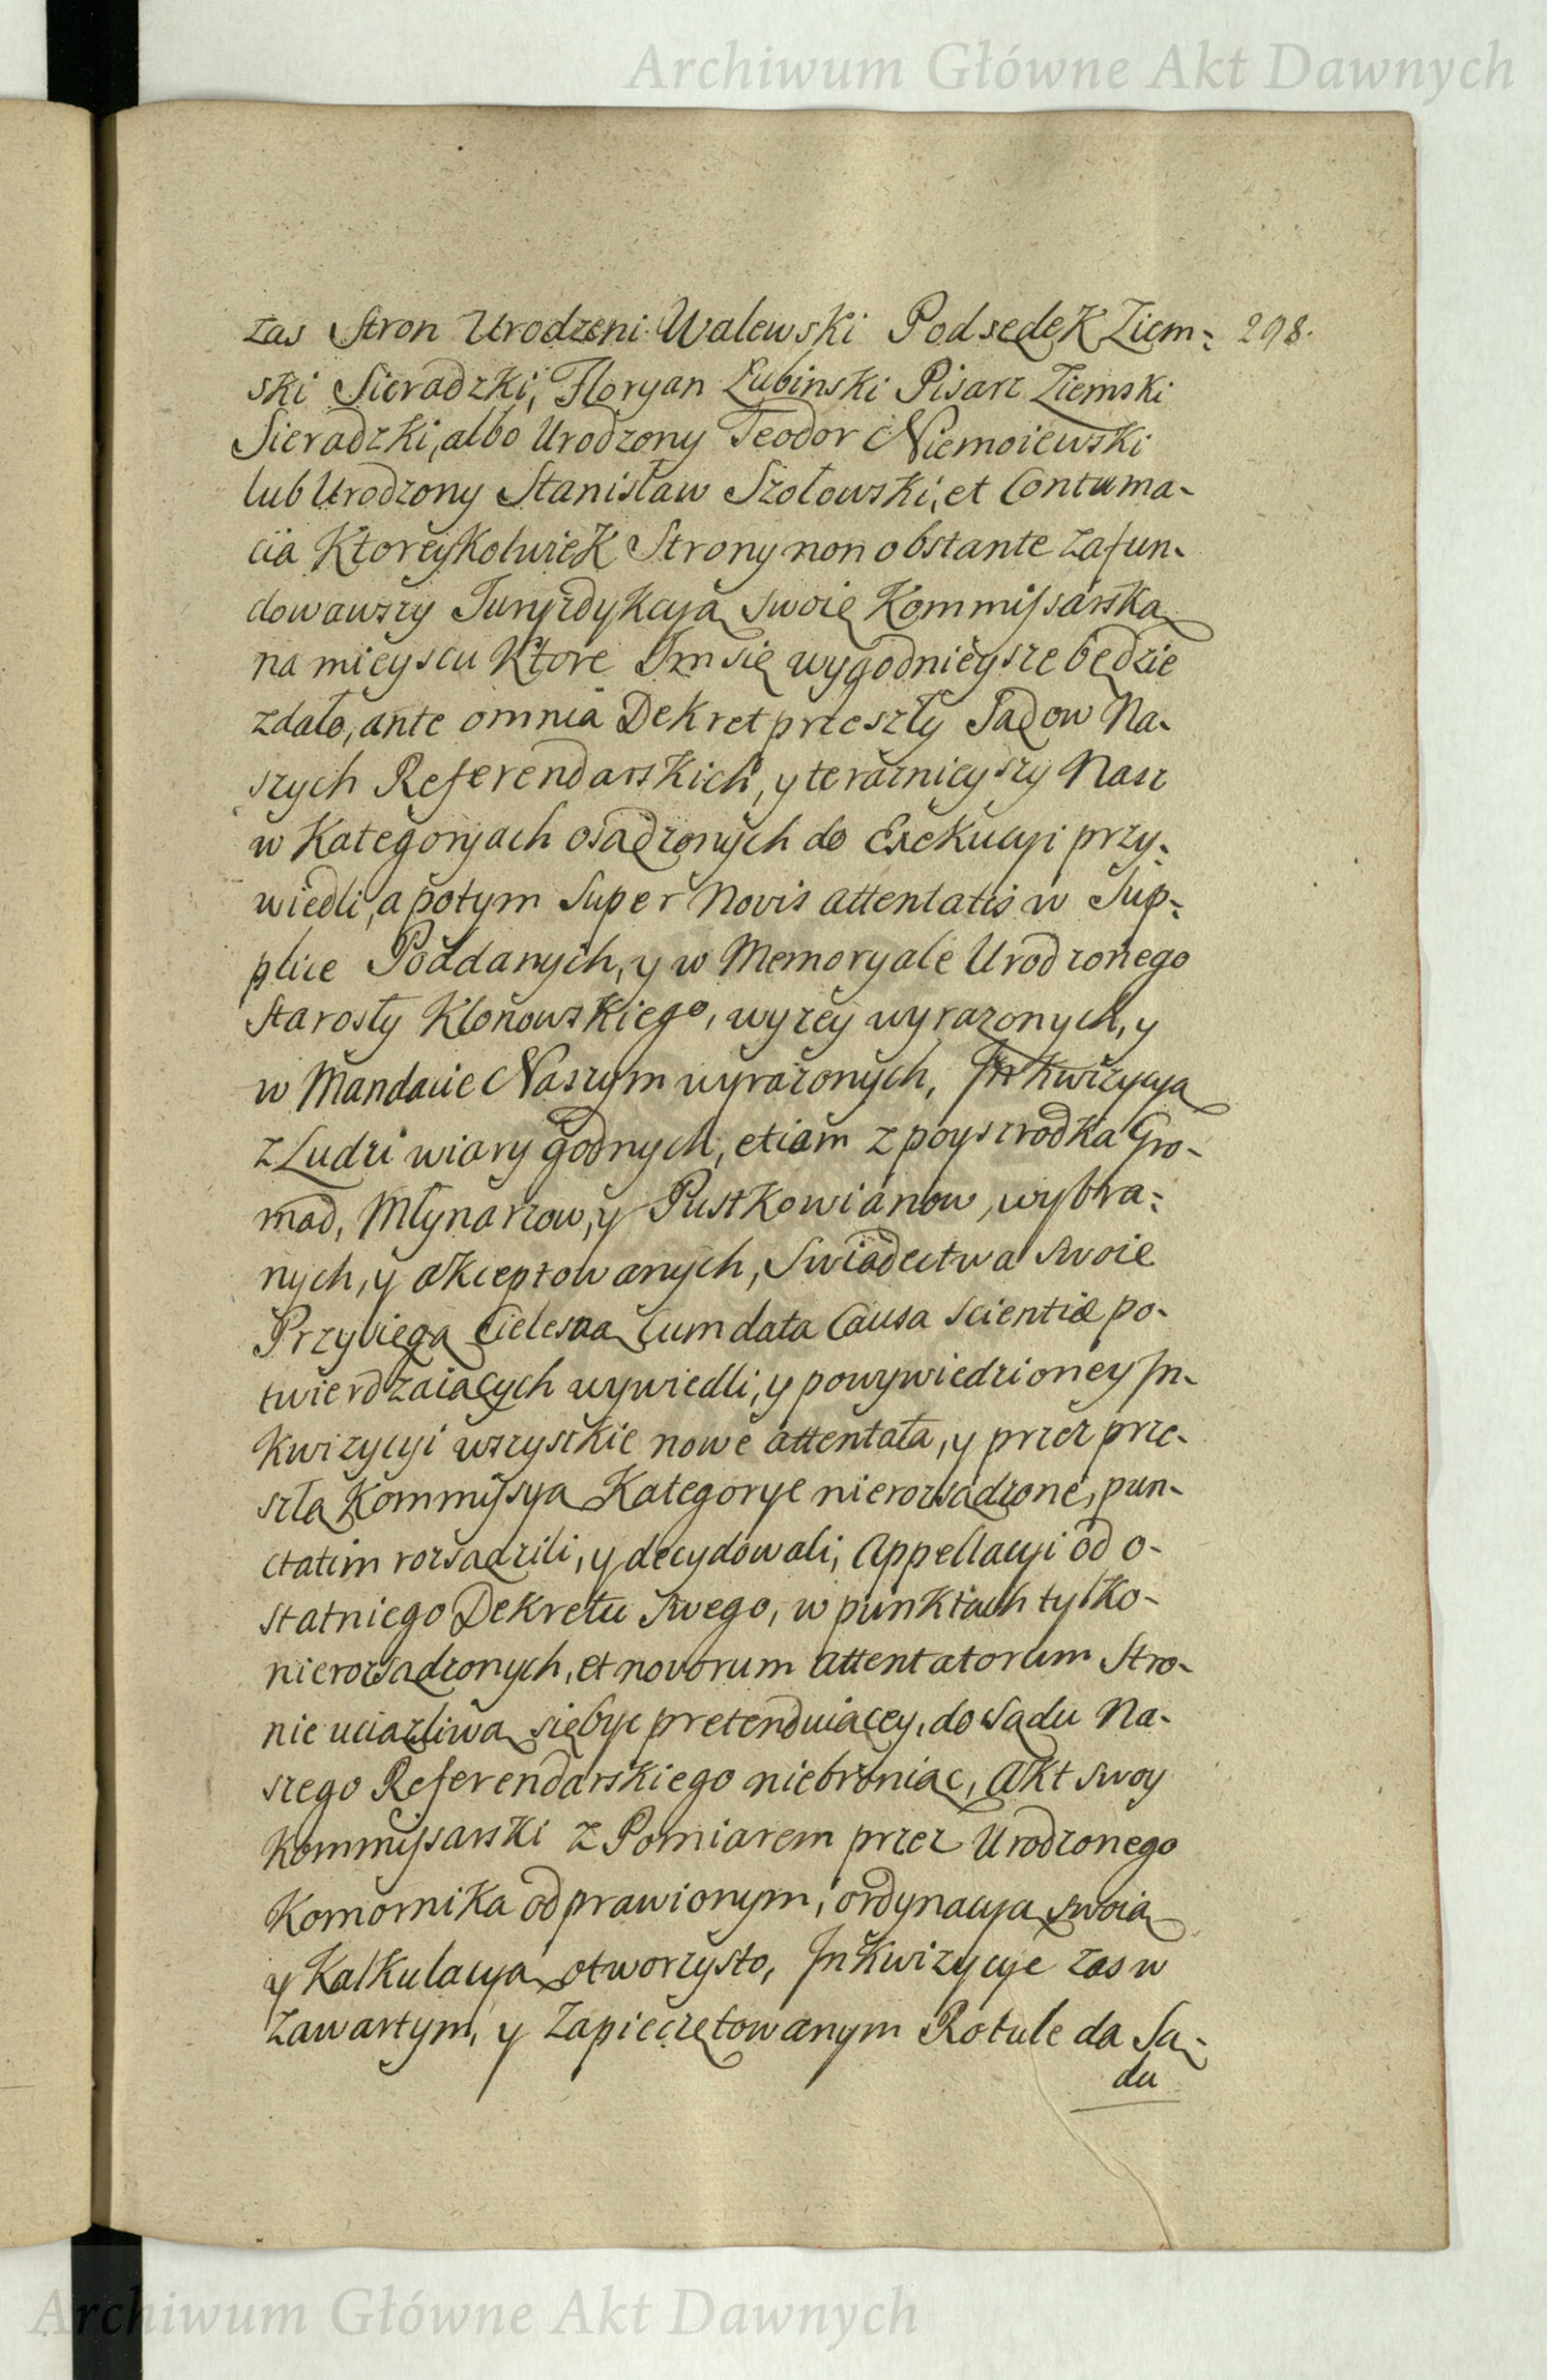 Archiwum Główne Akt Dawnych
zas Stron Urodzeni Walewski Podsędek Ziem- 298.
ski Sieradzki, Floryan Łubinski Pisarz Ziemski
Sieradzki, albo Urodzony Teodor Niemoiewski
lub Urodzony Stanisław Szołowski, et Contuma-
cia Ktoreykolwiek Strony non obstante zafun-
dowawszy Juryzdykcyą swoię Kommissarską
na mieyscu Ktore Im się wygodnieysze będzie
zdało, ante omnia Dekret przeszły Sądow Na-
szych Referendarskich, y teraznieyszy Nasz
w Kategoryach osądzonych do Exekucyi przy-
wiedli, a potym Super Novis attentatis w Sup-
plice Poddanych, y w Memoryale Urodzonego
Starosty Klonowskiego, wyzey wyrazonych, y
w Mandacie Naszym wyrazonych, Inkwizycyą
z Ludzi wiary godnych, etiam z poyszrodka Gro-
mad, Młynarzow, y Pustkowianow, wybra-
nych, y akceptowanych, Swiadectwa swoie
Przysięgą Cielesną Cum data Causa Scientiæ po-
twierdzaiących wywiedli, y po wywiedzioney In-
kwizycyi wszystkie nowe attentata, y przez prze-
szłą Kommissyą Kategorye nierozsądzone, pun-
ctatim rozsądzili, y decydowali, Appellacyi od o-
statniego Dekretu swego, w punktach tylko-
nierozsądzonych, et novorum attentatorum Stro-
nie uciązliwą się byc pretenduiącey, do Sądu Na-
szego Referendarskiego niebroniąc, Akt swoy
Kommissarski z Pomiarem przez Urodzonego
Komornika odprawionym, ordynacyą swoią
y Kalkulacyą otworzysto, Inkwizycye zas w
Zawartym, y Zapieczętowanym Rotule da Są-
du
Archiwum Główne Akt Dawnych